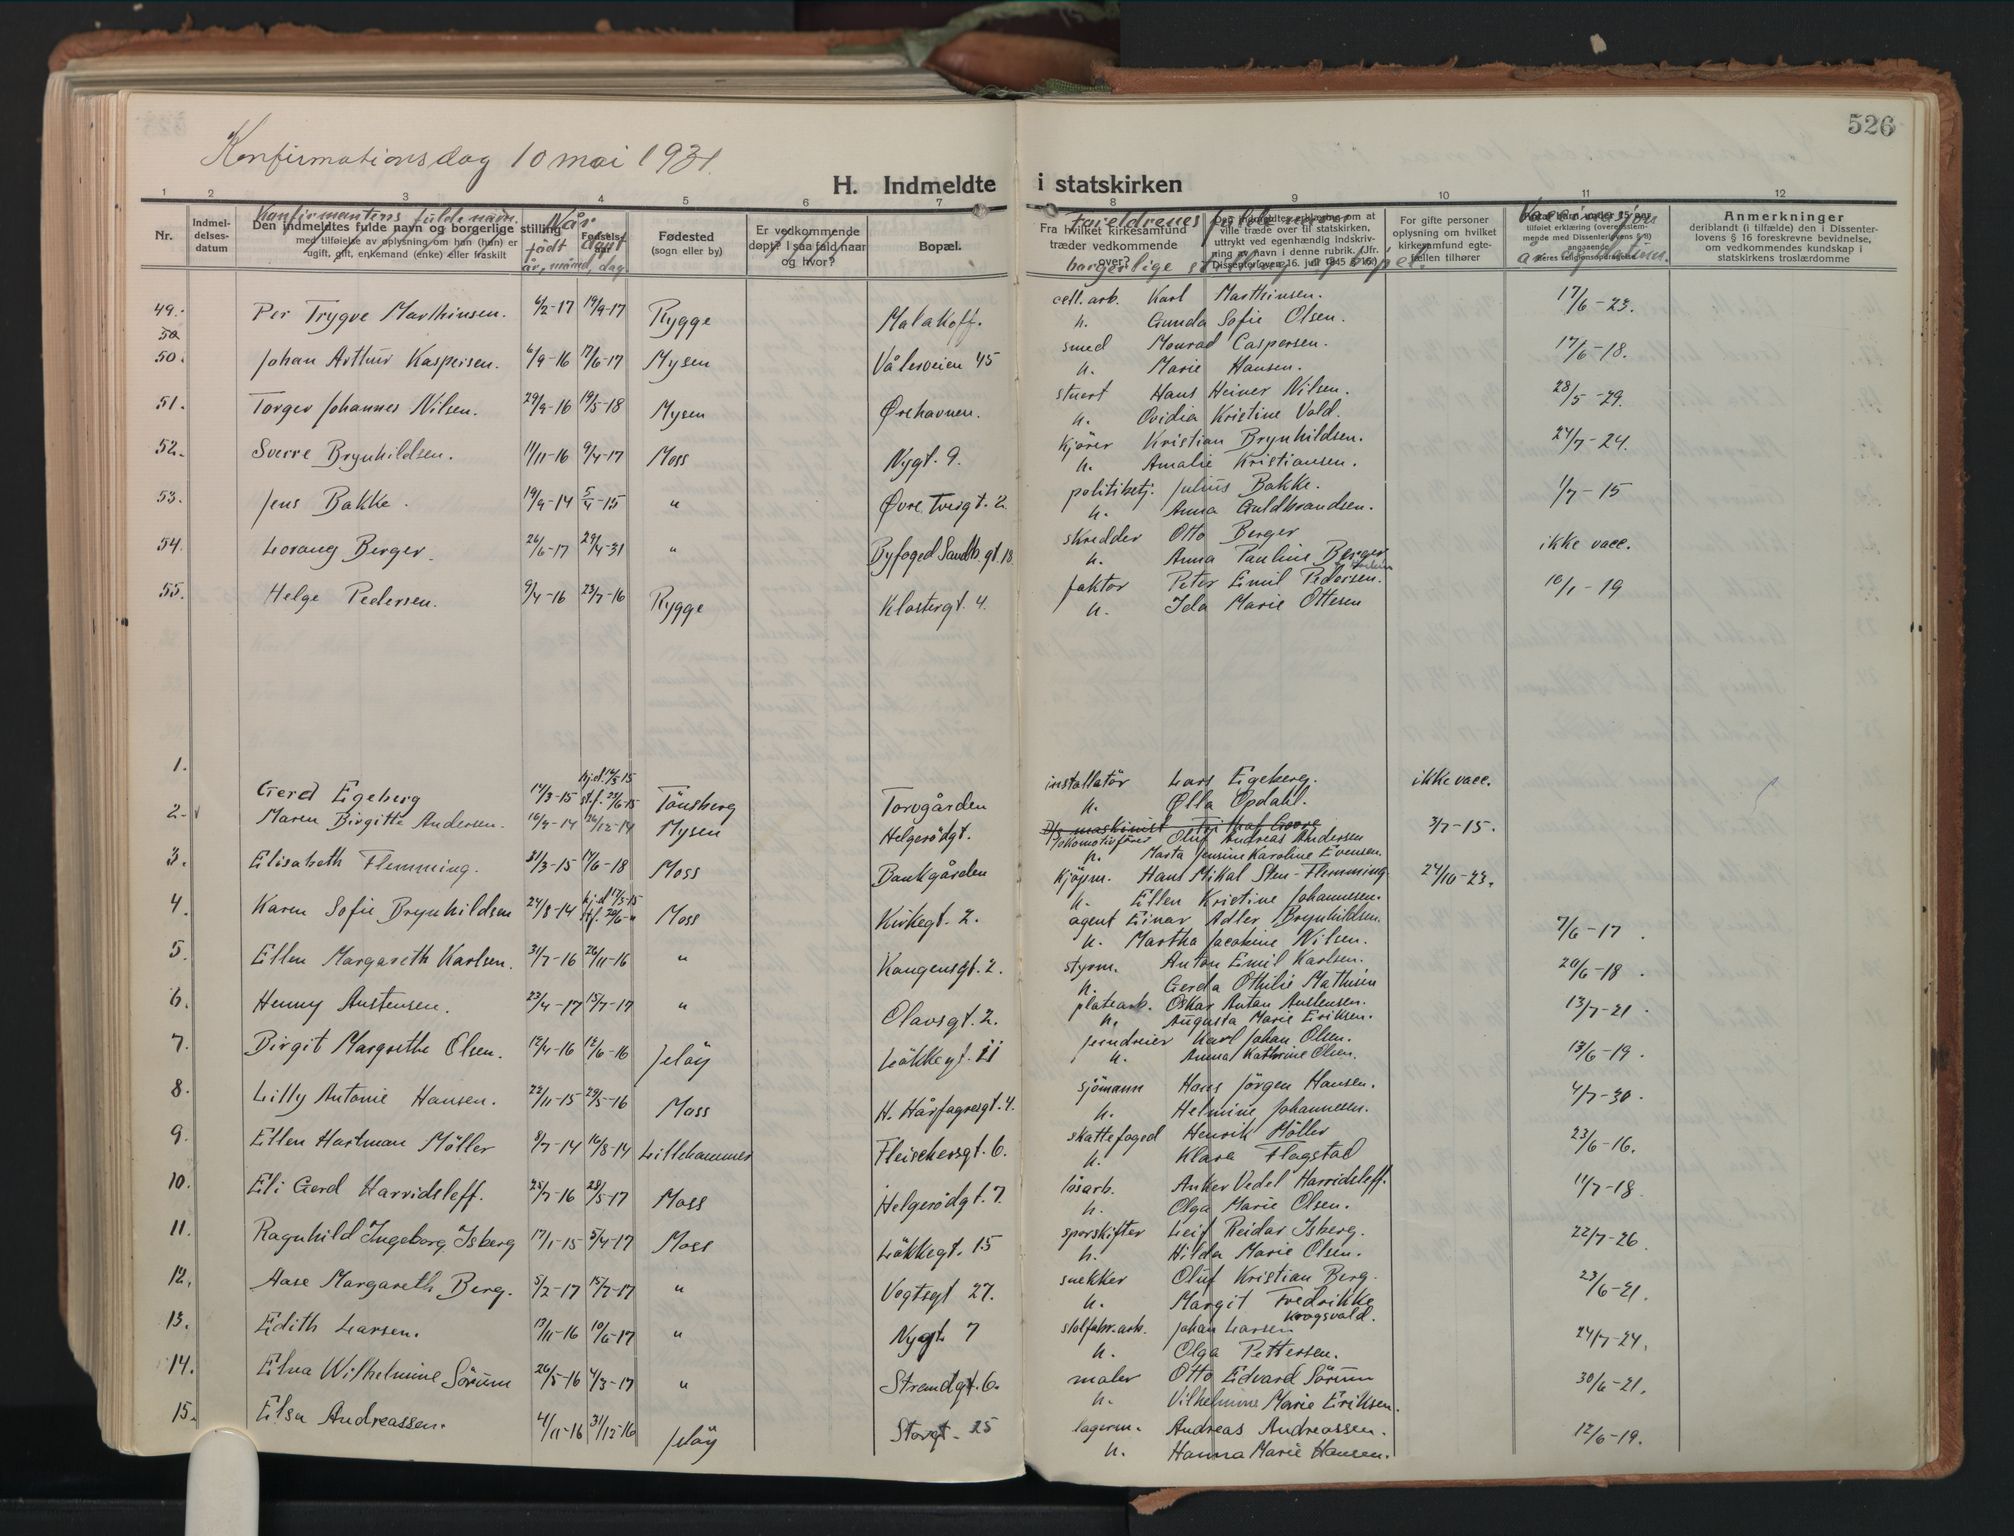 526
Konfirmationsdag 10 mai 1931.
H. Indmeldte i statskirken
1 2 3 4 5 6 7 8 9 10 11 12
Nr.
Indmel-
delses-
datum
Konfirmantens fulde navn.
Den indmeldtes fulde navn og borgerlige stilling
med tilføielse av oplysning om han (hun) er
ugift, gift, enkemand (enke) eller fraskilt
Når
født døpt
år, månd, dag
Fødested
(sogn eller by)
Er vedkommende
døpt? I saa fald naar
og hvor?
Bopæl.
Foreldrenes fulde navn
borgerlige stilling og bopel.
Fra hvilket kirkesamfund
træder vedkommende
over?
Den indmeldtes erklæring om at
ville træde over til statskirken,
uttrykt ved egenhændig indskriv-
ning av navn i denne rubrik. (Jfr.
Dissenterloven 16. juli 1845 § 16)
For gifte personer
oplysning om hvilket
kirkesamfund egte-
fællen tilhører
Anmerkninger
deriblandt (i tilfælde) den i Dissenter-
lovens § 16 foreskrevne bevidnelse,
om vedkommendes kundskap i
statskirkens troslærdomme
49. Per Trygve Marthinsen. 6/2-17 19/9-17 Rygge Malakoff. cell. arb. Karl Marthinsen. 17/6-23.
h. Gunda Sofie Olsen.
50
50. Johan Arthur Kaspersen. 6/9-16 17/6-17 Mysen Vålerveien 45 smed Monrad Caspersen. 17/6-18.
h. Marie Hansen.
51. Torger Johannes Nilsen. 29/9-16 19/5-18 Mysen Ørehavnen. stuert Hans Heiner Nilsen. 28/5-29.
h. Ovidia Kristine Vold.
52. Sverre Brynhildsen. 11/11-16 9/4-17 Moss Nygt. 9. kjører Kristian Brynhildsen. 24/7-24.
h. Amalie Kristiansen.
53. Jens Bakke. 19/9-14 5/4-15 " Øvre Tvergt. 2. politibetj. Julius Bakke. 1/7-15
h. Anna Guldbrandsen.
54. Lorang Berger. 26/6-17 29/4-31 " Byfoged Sandb. gt. 18 skredder Otto Berger ikke vacc.
h. Anna Pauline Berger
55. Helge Pedersen. 9/4-16 23/7-16 Rygge Klostergt. 4. faktor Peter Emil Pedersen. 10/1-19
h. Ida Marie Ottesen
1. Gerd Egeberg 14/3-15 hj.d. 14/5-15 stf. 24/6-15 Tönsberg Torvgården installatör Lars Egeberg. ikke vacc.
h. Ølla Opdahl.
2. Maren Birgitte Andersen. 16/9-14 26/12-14 Mysen Helgerödgt. Lokomotivfører Oluf Andreas Andersen 3/7-15.
h. Marta Jensine Karoline Evensen.
3. Elisabeth Flemming. 31/3-15 17/6-18 Moss Bankgården kjöpm. Hans Mikal Sten-Flemming 24/10-23.
h. Ellen Kristine Johannesen.
4. Karen Sofie Brynhildsen 24/8-14 hj.d. 17/5-15 stf. 20/6-" Moss Kirkegt. 2. agent Einar Adler Brynhildsen. 7/6-17.
h. Martha Jacobine Nilsen.
5. Ellen Margareth Karlsen. 31/7-16 26/11-16 " Kongensgt. 2. styrm. Anton Emil Karlsen. 20/6-18.
h. Gerda Othilie Mathisen
6. Henny Austensen. 23/4-17 15/7-17 " Olavsgt. 2. platearb. Oskar Anton Austensen. 13/7-21.
h. Augusta Marie Eriksen.
7. Birgit Margrethe Olsen. 12/4-16 12/6-16 Jelöy Lökkegt. 11 jerndreier Karl Johan Olsen. 13/6-19.
h. Anna Kathrine Olsen.
8. Lilly Antonie Hansen. 22/11-15 29/5-16 Moss H. Hårfagresgt. 4. sjömann Hans Jörgen Hansen. 4/7-30.
h. Helmine Johannesen.
9. Ellen Hartman Möller 8/7-14 16/8-14 Lillehammer Fleischersgt. 6. skattefoged Henrik Möller 23/6-16.
h. Klara Flagstad
10. Eli Gerd Harridsleff. 25/7-16 28/5-17 Moss Helgerödgt. 7. lösarb. Anker Vedel Harridsleff. 11/7-18
h. Olga Marie Olsen.
11. Ragnhild Ingeborg Isberg 17/1-15 5/4-17 Moss Lökkegt. 15 sporskifter Leif Reidar Isberg. 22/7-26
h. Hilda Marie Olsen.
12. Aase Margareth Berg. 5/2-17 15/7-17 " Vogtsgt 27. snekker Oluf Kristian Berg. 23/6-21.
h. Margit Fredrikke Krogsvold.
13. Edith Larsen. 13/11-16 10/6-17 " Nygt. 7 stolfabr.arb. Johan Larsen 24/7-24.
h. Olga Pettersen.
14. Elna Wilhelmine Sörum 26/5-16 4/3-17 " Strandgt. 6. maler Otto Edvard Sörum 30/6-21.
h. Vilhelmine Marie Eriksen.
15. Elsa Andreassen. 4/11-16 31/12-16 Jelöy Storgt. 25 lagerm. Andreas Andreassen. 12/6-19.
h. Hanna Marie Hansen.